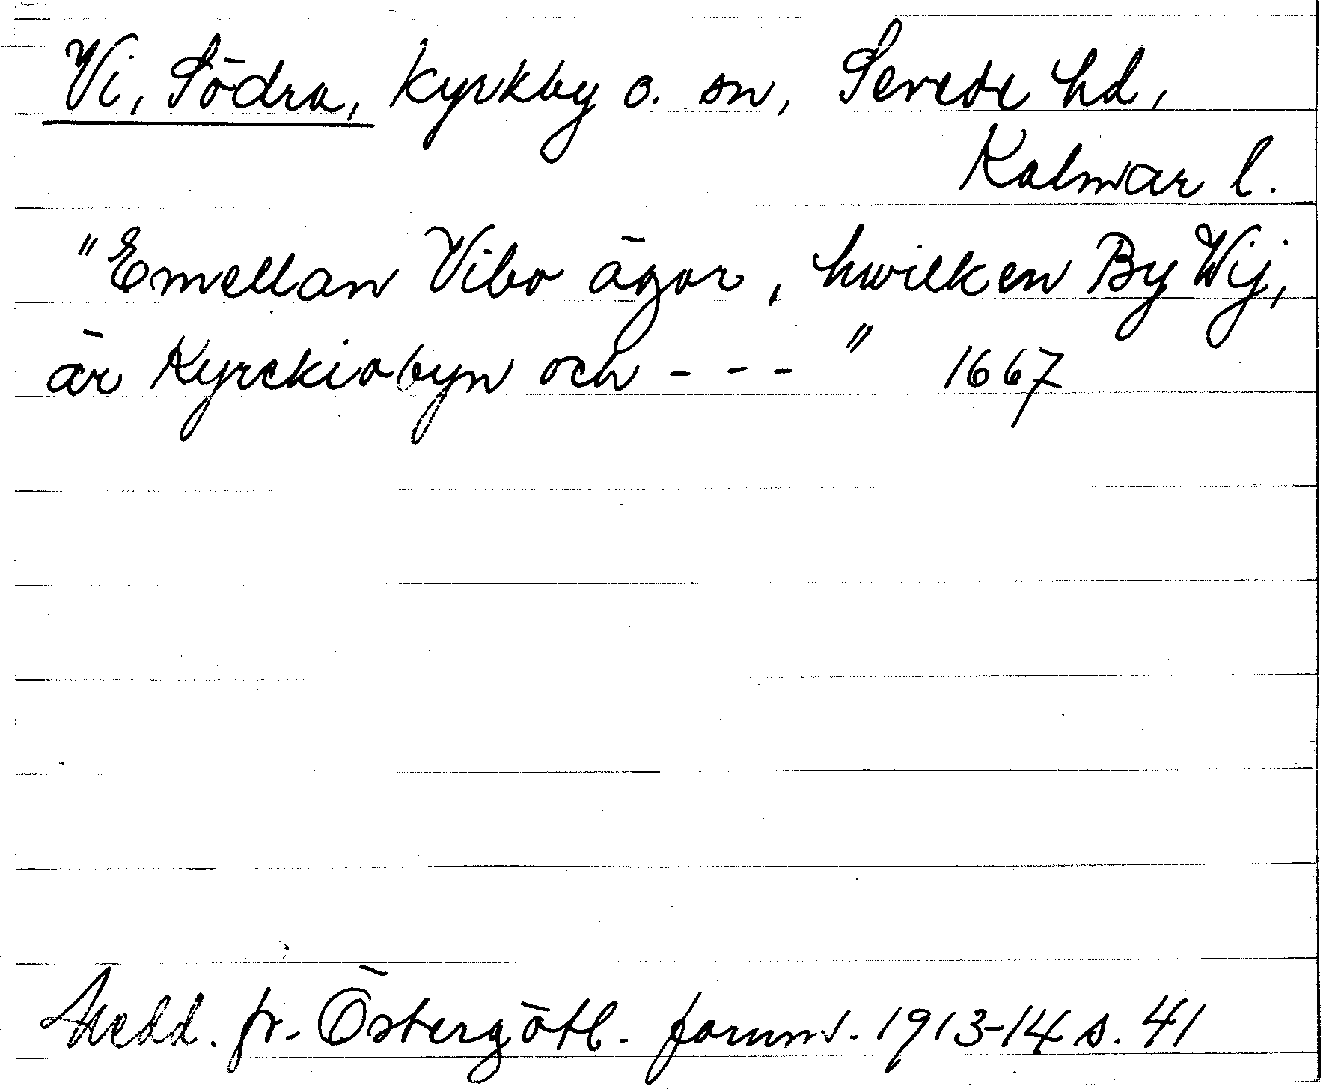 Vi, Södra, kyrkby o. sn, Sevede hd,
Kalmar l.
"Emellan Vibo ägor, hwilken By Wij,
är Kyrckiobyn och - - - " 1667
Medd. fr. Östergötl. fornm. 1913-14 s. 41